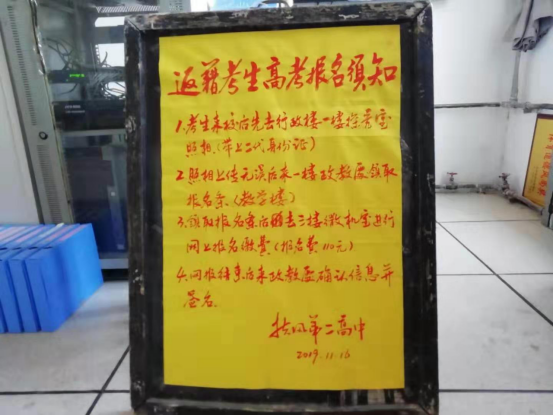 返籍考生高考报名须知
1.考生来校后先去行政楼一楼档案室
照相（带上二代身份证）
2.照相上传无误后来一楼政教处领取
报名表（教学楼）
3.领取报名表后随去三楼微机室进行
网上报名缴费（报名费110元）
4.网报结束后来政教处确认信息并
签名
扶风第二高中
2019.11.16